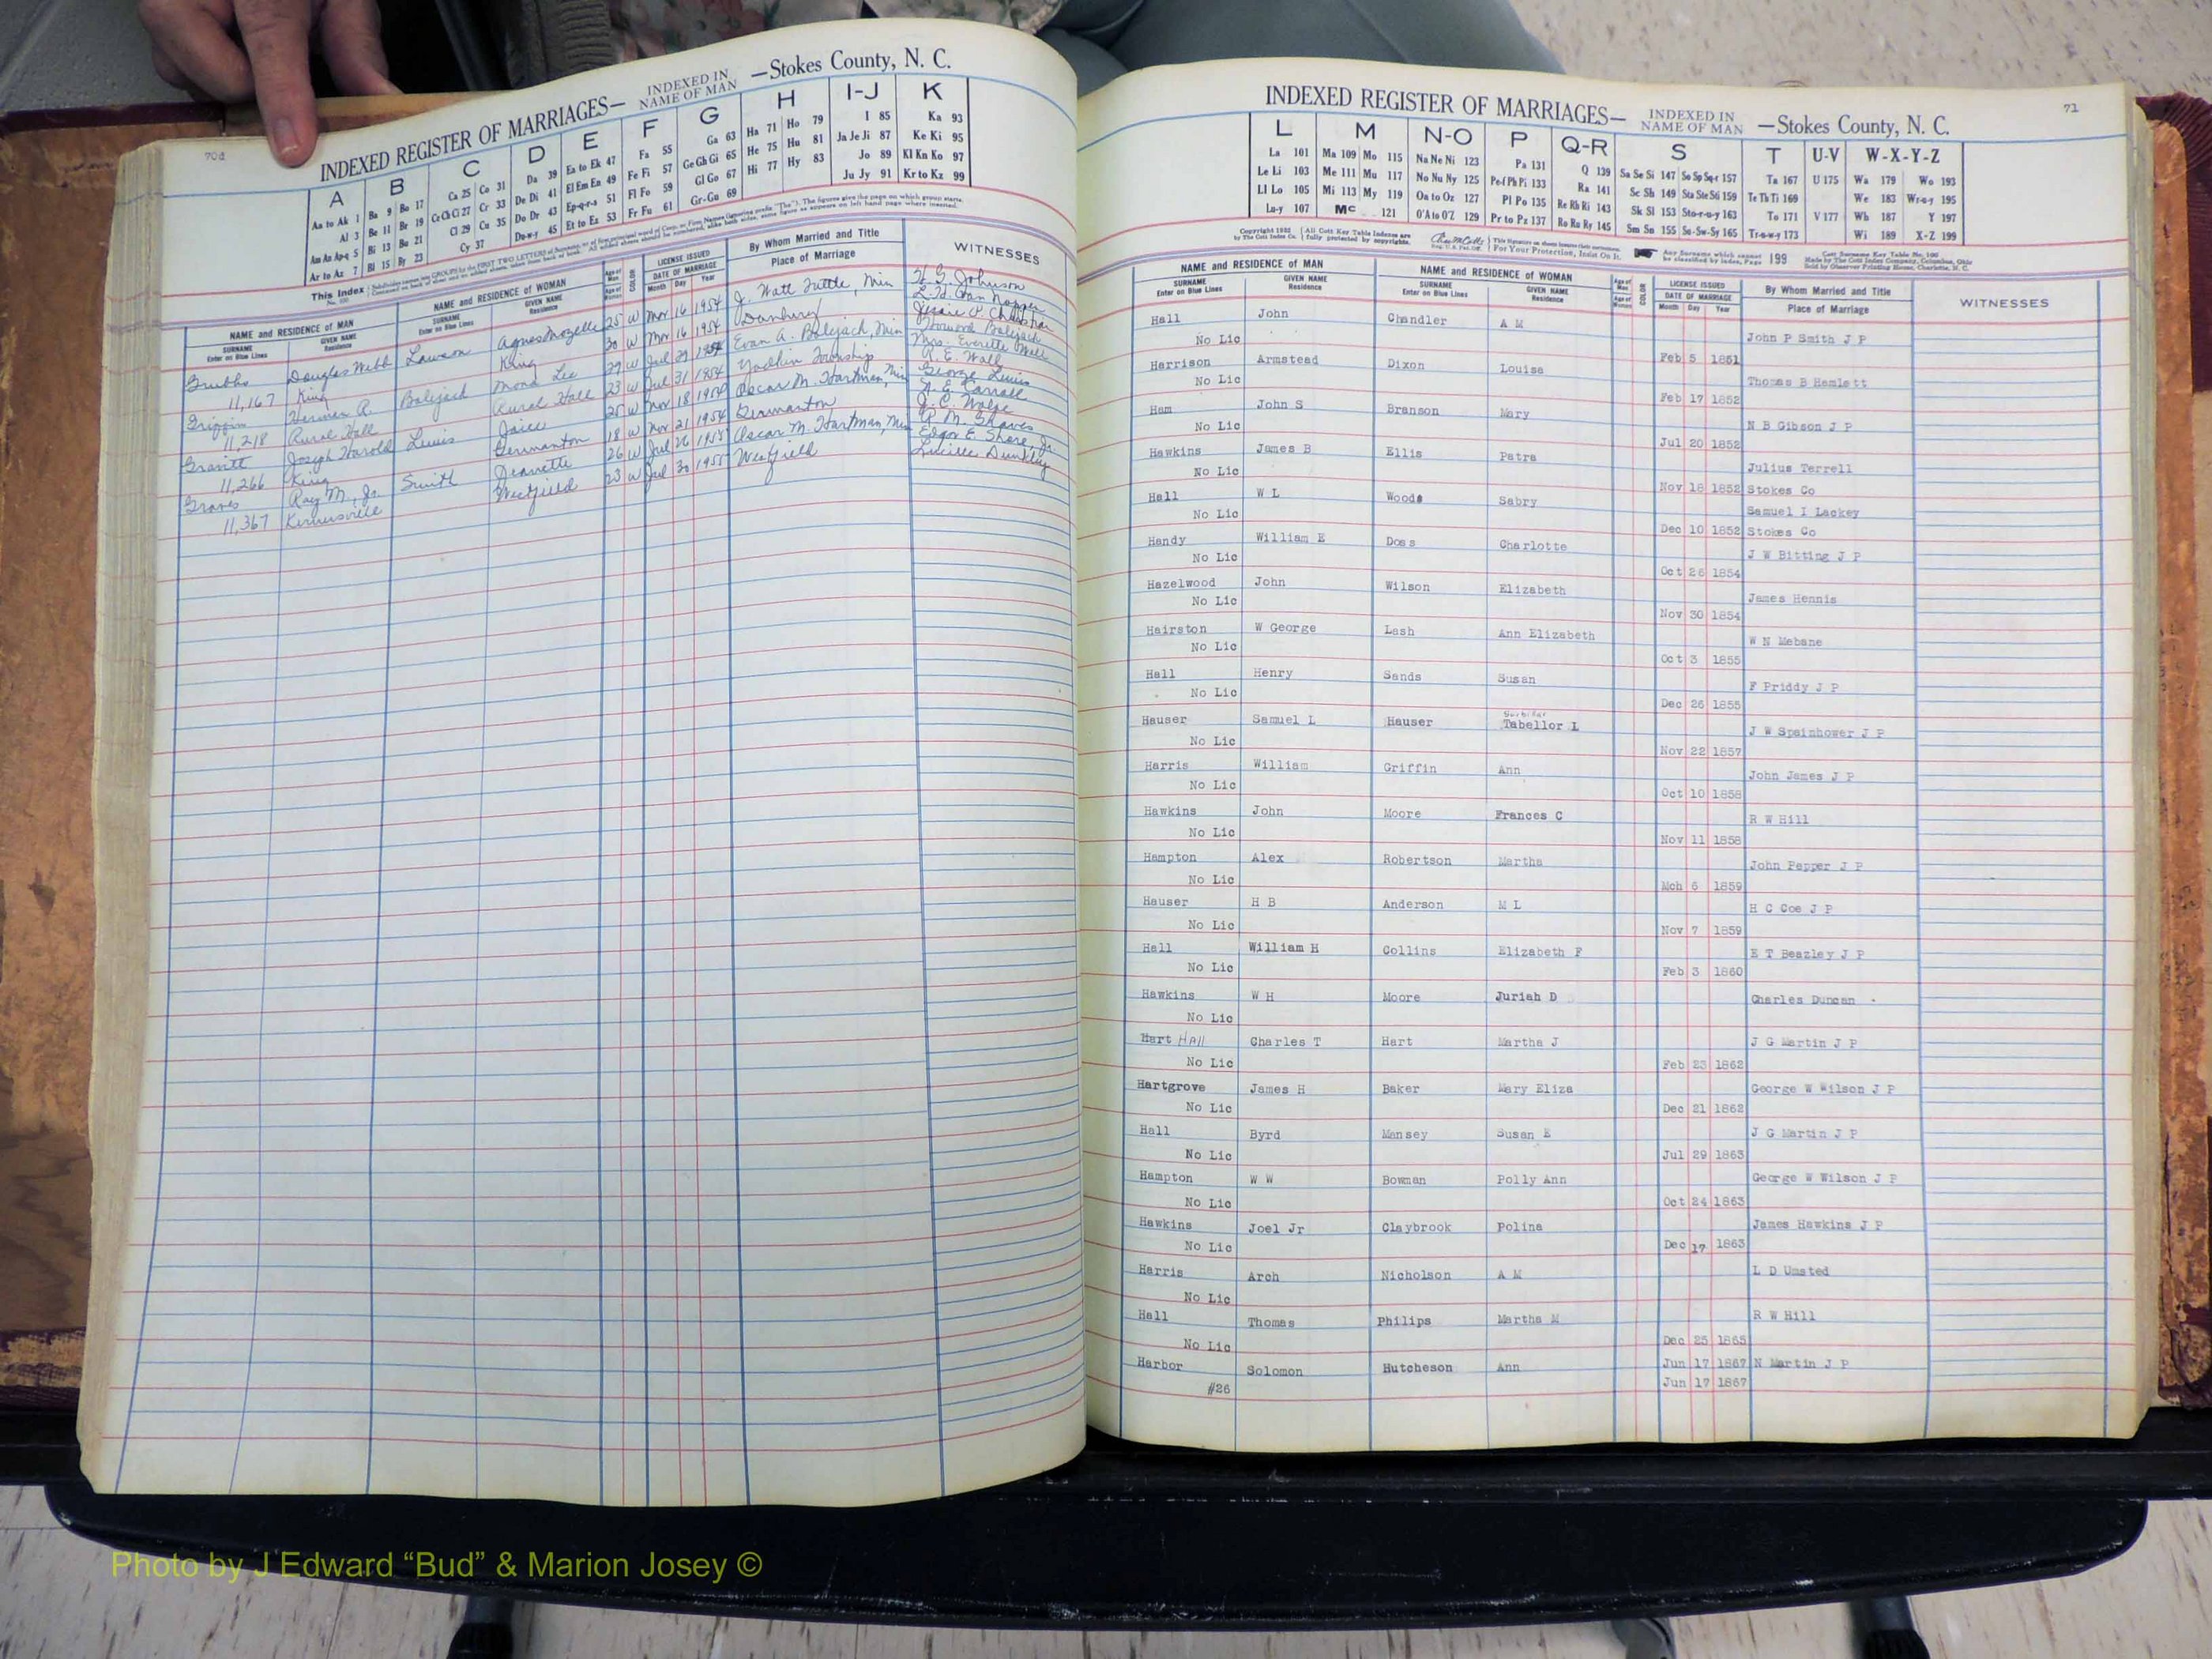 70d
INDEXED REGISTER OF MARRIAGES— INDEXED IN NAME OF MAN —Stokes County, N. C.
A B C D E F G H I-J K
Aa to Ak 1 Ba 9 Bo 17 Ca 25 Co 31 Da 39 Ea to Ek 47 Fa 55 Ga 63 Ha 71 Ho 79 I 85 Ka 93
Al 3 Be 11 Br 19 Ce Ch Ci 27 Cr 33 De Di 41 El Em En 49 Fe Fi 57 Ge Gh Gi 65 He 75 Hu 81 Ja Je Ji 87 Ke Ki 95
Am An Ap-q 5 Bi 13 Bu 21 Cl 29 Cu 35 Do Dr 43 Ep-q-r-s 51 Fl Fo 59 Gl Go 67 Hi 77 Hy 83 Jo 89 Kl Kn Ko 97
Ar to Az 7 Bl 15 By 23 Cy 37 Du-w-y 45 Et to Ez 53 Fr Fu 61 Gr-Gu 69 Ju Jy 91 Kr to Kz 99
NAME and RESIDENCE OF MAN NAME and RESIDENCE OF WOMAN LICENSE ISSUED By Whom Married and Title WITNESSES
SURNAME GIVEN NAME SURNAME GIVEN NAME COLOR DATE OF MARRIAGE Place of Marriage
Enter on Blue Lines Residence Enter on Blue Lines Residence Month Day Year
Grubbs Douglas Webb Lawson Agnes Mozelle 25 W Mor 16 1954 J. Watt Tuttle, Min H. G. Johnson
11,167 King King 30 W Mor 16 1954 Danbury
Griffin Herman R. Bolejack Mona Lee 29 W Jul 29 1954 Evan A. Bolejack, Min
11,218 Rural Hall Rural Hall 23 W Jul 31 1954 Yadkin Township Mrs. Everette Wall
Gravitt Joseph Harold Lewis Joice 25 W Nov 18 1954 Oscar M. Hartman, Min R. E. Wall
11,266 King Germanton 18 W Nov 21 1954 Germanton George Lewis
Graves Ray M., Jr. Smith Jeanette 26 W Jul 26 1955 Oscar M. Hartman, Min
11,367 Kernersville Westfield 23 W Jul 30 1955 Westfield
71
INDEXED REGISTER OF MARRIAGES— INDEXED IN NAME OF MAN —Stokes County, N. C.
L M N-O P Q-R S T U-V W-X-Y-Z
La 101 Ma 109 Mo 115 Na Ne Ni 123 Pa 131 Q 139 Sa Se Si 147 So Sp Sq-r 157 Ta 167 U 175 Wa 179 Wo 193
Le Li 103 Me 111 Mu 117 No Nu Ny 125 Pe-f Ph Pi 133 Ra 141 Sc Sh 149 Sta Ste Sti 159 Te Th Ti 169 We 183 Wr-a-y 195
Ll Lo 105 Mi 113 My 119 Oa to Oz 127 Pl Po 135 Re Rh Ri 143 Sk Sl 153 Sto-r-u-y 163 To 171 V 177 Wh 187 Y 197
Lu-y 107 Mc 121 O'A to O'Z 129 Pr to Pz 137 Ro Ru Ry 145 Sm Sn 155 Su-Sw-Sy 165 Tr-u-w-y 173 Wi 189 X-Z 199
NAME and RESIDENCE OF MAN NAME and RESIDENCE OF WOMAN LICENSE ISSUED By Whom Married and Title WITNESSES
SURNAME GIVEN NAME SURNAME GIVEN NAME COLOR DATE OF MARRIAGE Place of Marriage
Enter on Blue Lines Residence Enter on Blue Lines Residence Month Day Year
Hall John Chandler A M John P Smith J P
No Lic Feb 5 1851
Harrison Armstead Dixon Louise Thomas B Hamlett
No Lic Feb 17 1852
Ham John S Branson Mary N B Gibson J P
No Lic Jul 20 1852
Hawkins James B Ellis Patra Julius Terrell
No Lic Nov 18 1852 Stokes Co
Hall W L Woods Sabry Samuel I Lackey
No Lic Dec 10 1852 Stokes Co
Handy William E Doss Charlotte J W Bitting J P
No Lic Oct 26 1854
Hazelwood John Wilson Elizabeth James Hennis
No Lic Nov 30 1854
Hairston W George Lash Ann Elizabeth W N Mebane
No Lic Oct 3 1855
Hall Henry Sands Susan F Priddy J P
No Lic Dec 26 1855
Hauser Samuel L Hauser Tabellor L J W Spainhower J P
No Lic Nov 22 1857
Harris William Griffin Ann John James J P
No Lic Oct 10 1858
Hawkins John Moore Frances C R W Hill
No Lic Nov 11 1858
Hampton Alex Robertson Martha John Pepper J P
No Lic Mch 6 1859
Hauser H B Anderson M L H C Coe J P
No Lic Nov 7 1859
Hall William H Collins Elizabeth F E T Beazley J P
No Lic Feb 3 1860
Hawkins W H Moore Juriah D Charles Duncan
No Lic
Hart Hall Charles T Hart Martha J J G Martin J P
No Lic Feb 23 1862
Hartgrove James H Baker Mary Eliza George W Wilson J P
No Lic Dec 21 1862
Hall Byrd Mansey Susan E J G Martin J P
No Lic Jul 29 1863
Hampton W W Bowman Polly Ann George W Wilson J P
No Lic Oct 24 1863
Hawkins Joel Jr Claybrook Polina James Hawkins J P
No Lic Dec 17 1863
Harris Arch Nicholson A M L D Umsted
No Lic
Hall Thomas Philips Martha M R W Hill
No Lic Dec 25 1865
Harbor Solomon Hutcheson Ann Jun 17 1867 N Martin J P
#26 Jun 17 1867
Photo by J Edward “Bud” & Marion Josey ©